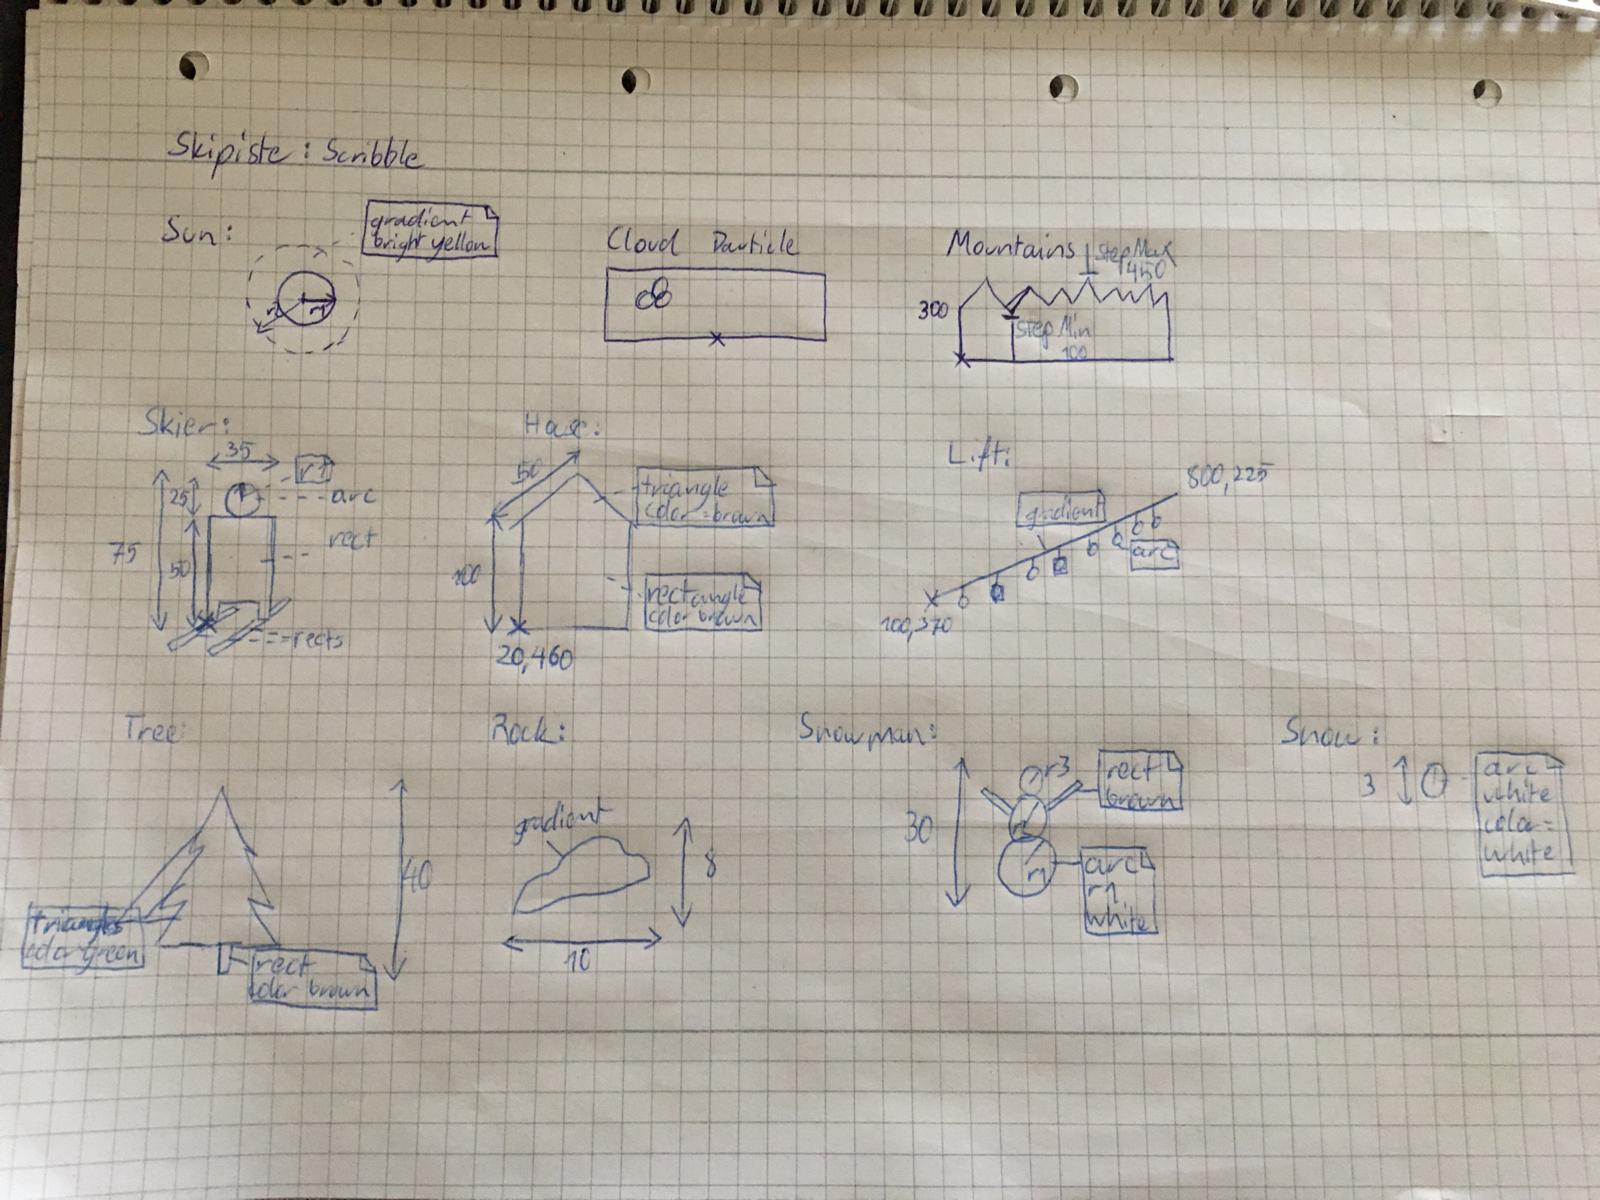 Skipiste: Scribble
Sun:
gradient
bright yellow
r1
Cloud Particle
Mountains
Step Max
450
300
Step Min
100
Skier:
35
r1
25
arc
75
50
rect
rects
50
triangle
color=brown
100
rectangle
color brown
20,460
Lift:
800,225
gradient
arc
100,370
Tree:
40
triangles
color green
rect
color brown
Rock:
gradient
8
10
Snowman:
r3
rect
brown
30
r1
arc
r1
white
Snow:
3
arc
white
color=
white